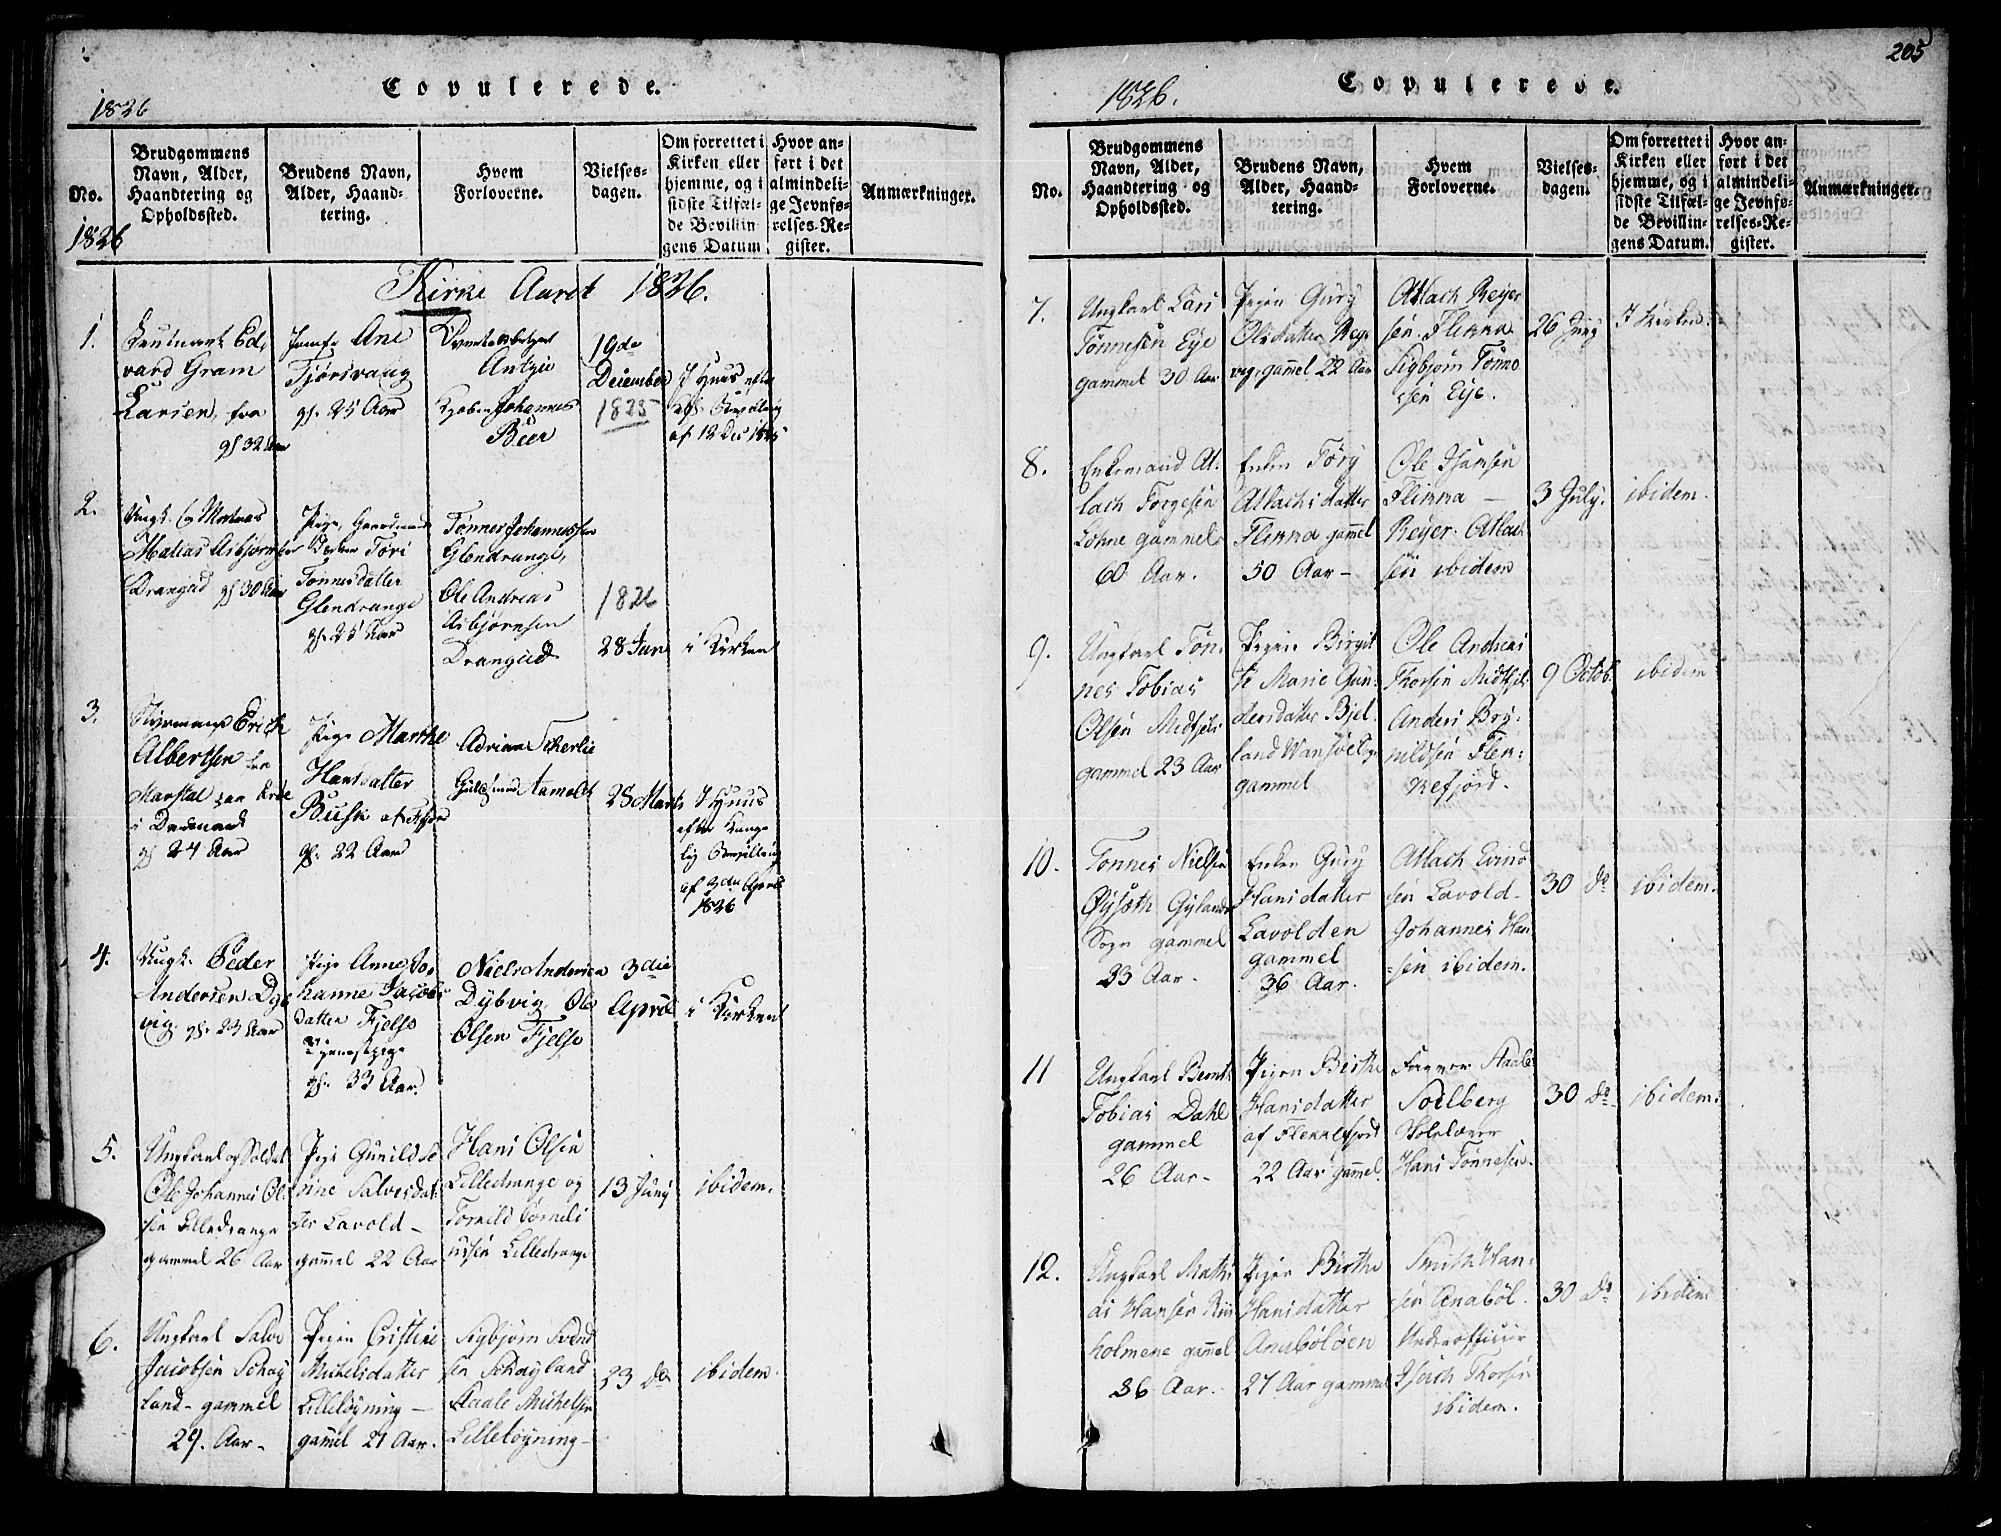 Copulerede.
1826
No.
Brudgommens
Navn, Alder,
Haandtering og
Opholdssted.
Brudens Navn,
Alder, Haand-
tering.
Hvem
Forloverne.
Vielses-
dagen.
Om forrettet i
Kirken eller
hjemme, og i
sidste Tilfæl-
de Bevillin-
gens Datum
Hvor an-
ført i det
almindeli-
ge Jevnfø-
relses-Re-
gister.
Anmærkninger.
1826
Kirke Aaret 1826.
1.
Edvard Gram
Larsen, fra
32 Aar
Jomfr Ane
Tjørsvaag
gl. 25 Aar
Johannes
Beer
19de
December
1825
I Huus efter
af 12 Dec 1825
2.
Matias Asbjørnsen
Drangud gl 30 Aar
Pige,
Tori
Tønnesdatter
Glendrange
gl. 25 Aar
Tønnes Johannessen
Glendrange,
Ole Andreas
Asbjørnsen
Drangud
1826
28 Jan
i Kirken
3.
Styrmand Erich
Albertsen fra
Marstal
i Danmark
gl 24 Aar
Pige Marthe
Hansdatter
Busk
gl. 22 Aar
Adrian
Aamodt
28 Marts
I Huus
efter Konge-
lig Bevilling
af 3die April
1826
4.
Ungk. Peder
Andersen Dyb
vig. gl. 23 Aar
Pige Anne Jo
hanne Jacobs
datter Fjelse
Tjenestpige
gl. 33 Aar.
Niels Andersen
Dybvig, Ole
Olsen Fjelse
3die
April
i Kirken
5.
Ungkarl og Soldat
Ole Johannes Ol-
sen Lilledrange
gammel 26 Aar
Pige Gunild Se
rine Salvesdat-
ter Lavold -
gammel 22 Aar
Hans Olsen
Lilledrange og
Tornild Corneli
ussen Lilledrange
13 Juny
ibidem.
6.
Ungkarl Salve
Jacobsen Schøy
land - gammel
29. Aar -
Pigen Cristine
Michelsdatter
Lilleløyning -
gammel 21 Aar.
Sigbjørn Svend
sen Schøyland
Staale Michelsen
Lilleløyning -
23 do
ibidem.
205
Copulerede.
1826.
No.
Brudgommens
Navn, Alder,
Haandtering og
Opholdssted.
Brudens Navn,
Alder, Haand-
tering.
Hvem
Forloverne.
Vielses-
dagen.
Om forrettet i
Kirken eller
hjemme, og i
sidste Tilfæl-
de Bevillin-
gens Datum.
Hvor an-
ført i det
almindeli-
ge Jevnfø-
relses-Re-
gister.
Anmærkninger.
7.
Ungkarl Lars
Tønnesen Eye
gammel 30 Aar
Pigen Gury
Olsdatter Rege
vig. gammel 22 Aar
Atlach Reyer
sen. Flikka
Sigbjørn Tønne
sen Eye.
26 Juny
I Kirken.
8.
Enkemand At-
lach Torgesen
Lohne gammel
60 Aar.
Enken Tory
Atlachsdatter
Flikka gammel
50 Aar -
Ole Hansen
Flikka -
Reyer. Atlach
sen ibidem
3 July.
ibidem.
9.
Ungkarl Tøn-
nes Tobias
Olsen Midtfiels
gammel 23 Aar
Pigen Birgit
te Marie Gun-
dersdatter Bjel-
land
gammel
Ole Andreas
Thorsen Midtfiels
Anders Bry-
nildsen Flek-
kefjord.
9 Octob.
ibidem
10.
Tønnes Nielsen
Øysæth Gylands
Sogn gammel
33 Aar -
Enken Gury
Hansdatter
Lavolden
gammel
36 Aar.
Atlach Evind
sen Lavold -
Johannes Han
sen ibidem.
30 do
ibidem.
11
Ungkarl Bernt
Tobias Dahl
gammel
26 Aar -
Pigen Birthe
Hansdatter
af Flekkefjord
22 Aar gammel.
Staale
Soelberg
Skolelærer
Hans Tønnesen.
30 do
ibidem.
12.
Ungkarl Mathi
as Hansen
holmene gammel
36 Aar.
Pigen Birthe
Hansdatter
Anabøløen
27 Aar gammel
Smith Han-
sen Anabøl.
Underofficier
Thorsen
ibidem.
30 do
ibidem